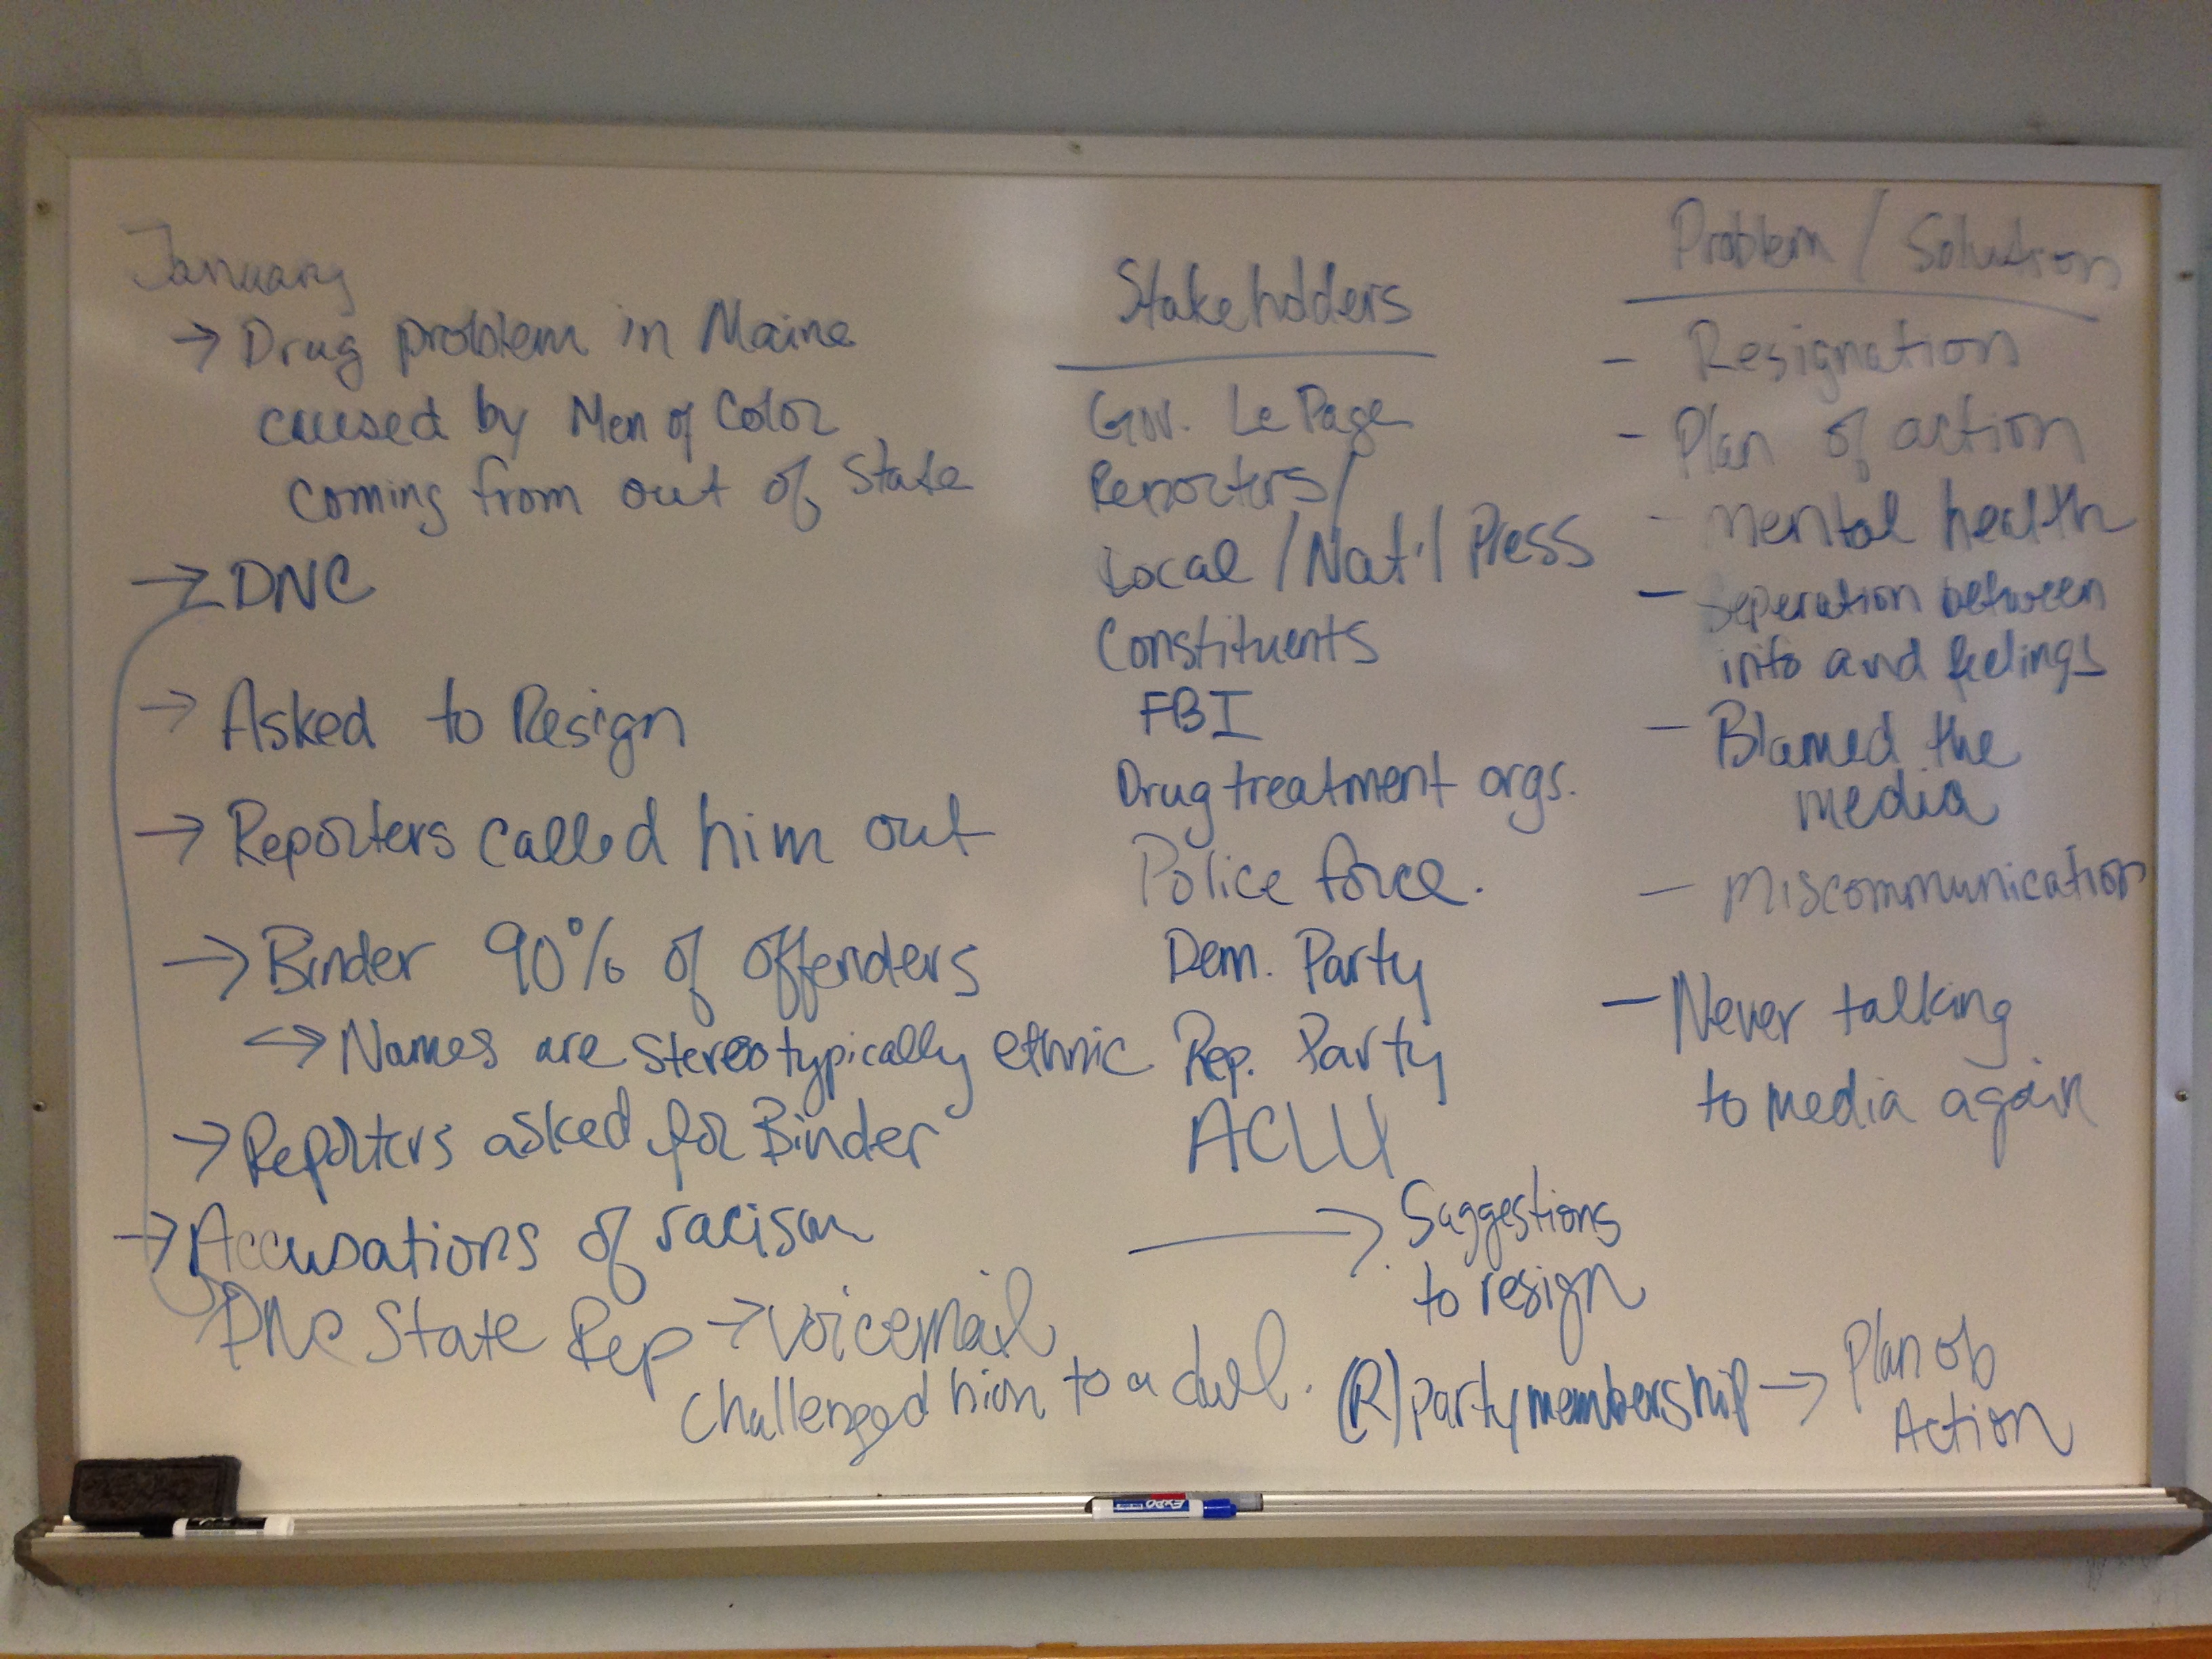 January
→ Drug problem in Maine
caused by Men of Color
coming from out of State
→ DNC
→ Asked to Resign
→ Reporters called him out
→ Binder 90% of offenders
↔ Names are stereotypically ethnic
→ Reporters asked for Binder
→ Accusations of racism
DNC State Rep → voicemail
Challenged him to a duel.
Stakeholders
Gov. LePage
Reporters/
Local / Nat'l Press
Constituents
FBI
Drug treatment orgs.
Police force.
Dem. Party
Rep. Party
ACLU
→ Suggestions
to resign
(R) party membership → Plan of
Action
Problem / Solution
- Resignation
- Plan of action
- Mental health
- Seperation between
info and feelings
- Blamed the
media
- Miscommunication
- Never talking
to media again
EXPO